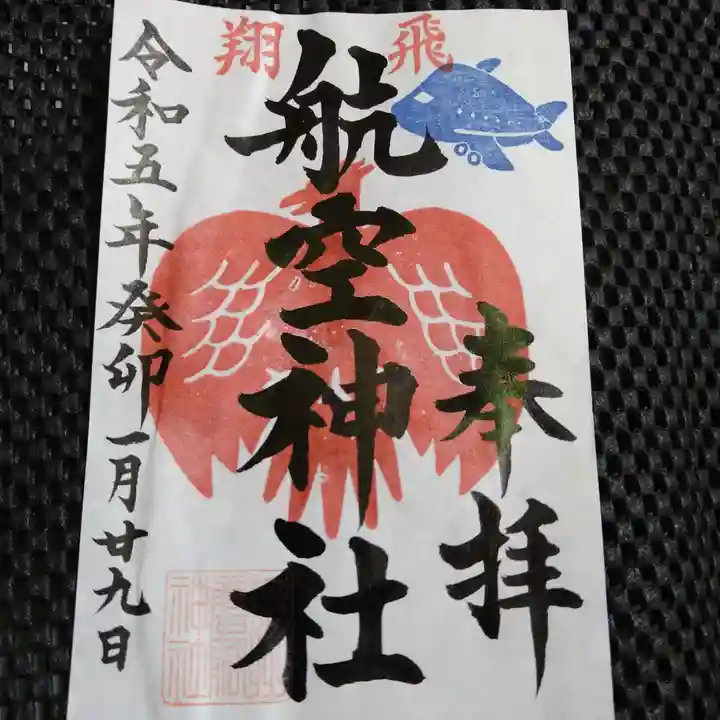 飛翔
奉拝
航空神社
令和五年癸卯一月廿九日